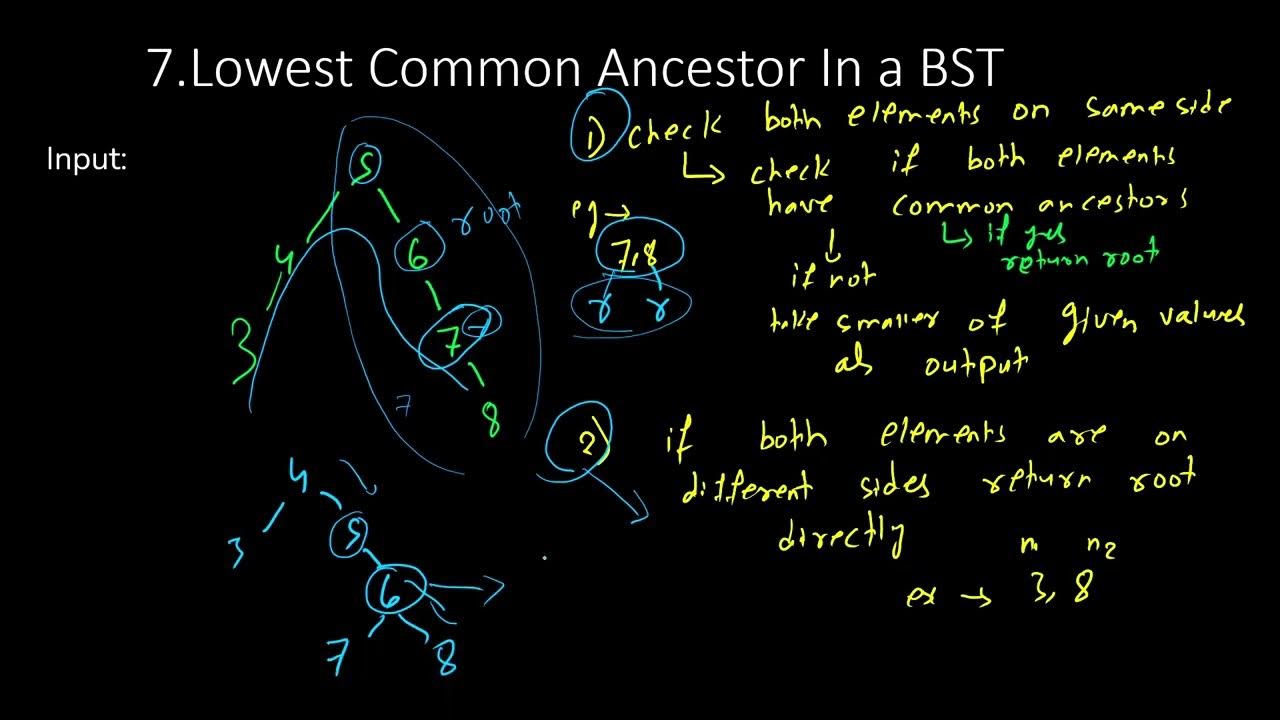 7.Lowest Common Ancestor In a BST
Input:
5
4 6 root
3 7 7
8
7
4
3 5
6
7 8
1) check both elements on same side
check if both elements
have common ancestors
if yes
return root
if not
take smaller of given values
als output
eg →
7,8
r r
2) if both elements are on
different sides return root
directly
n n2
ex → 3, 8